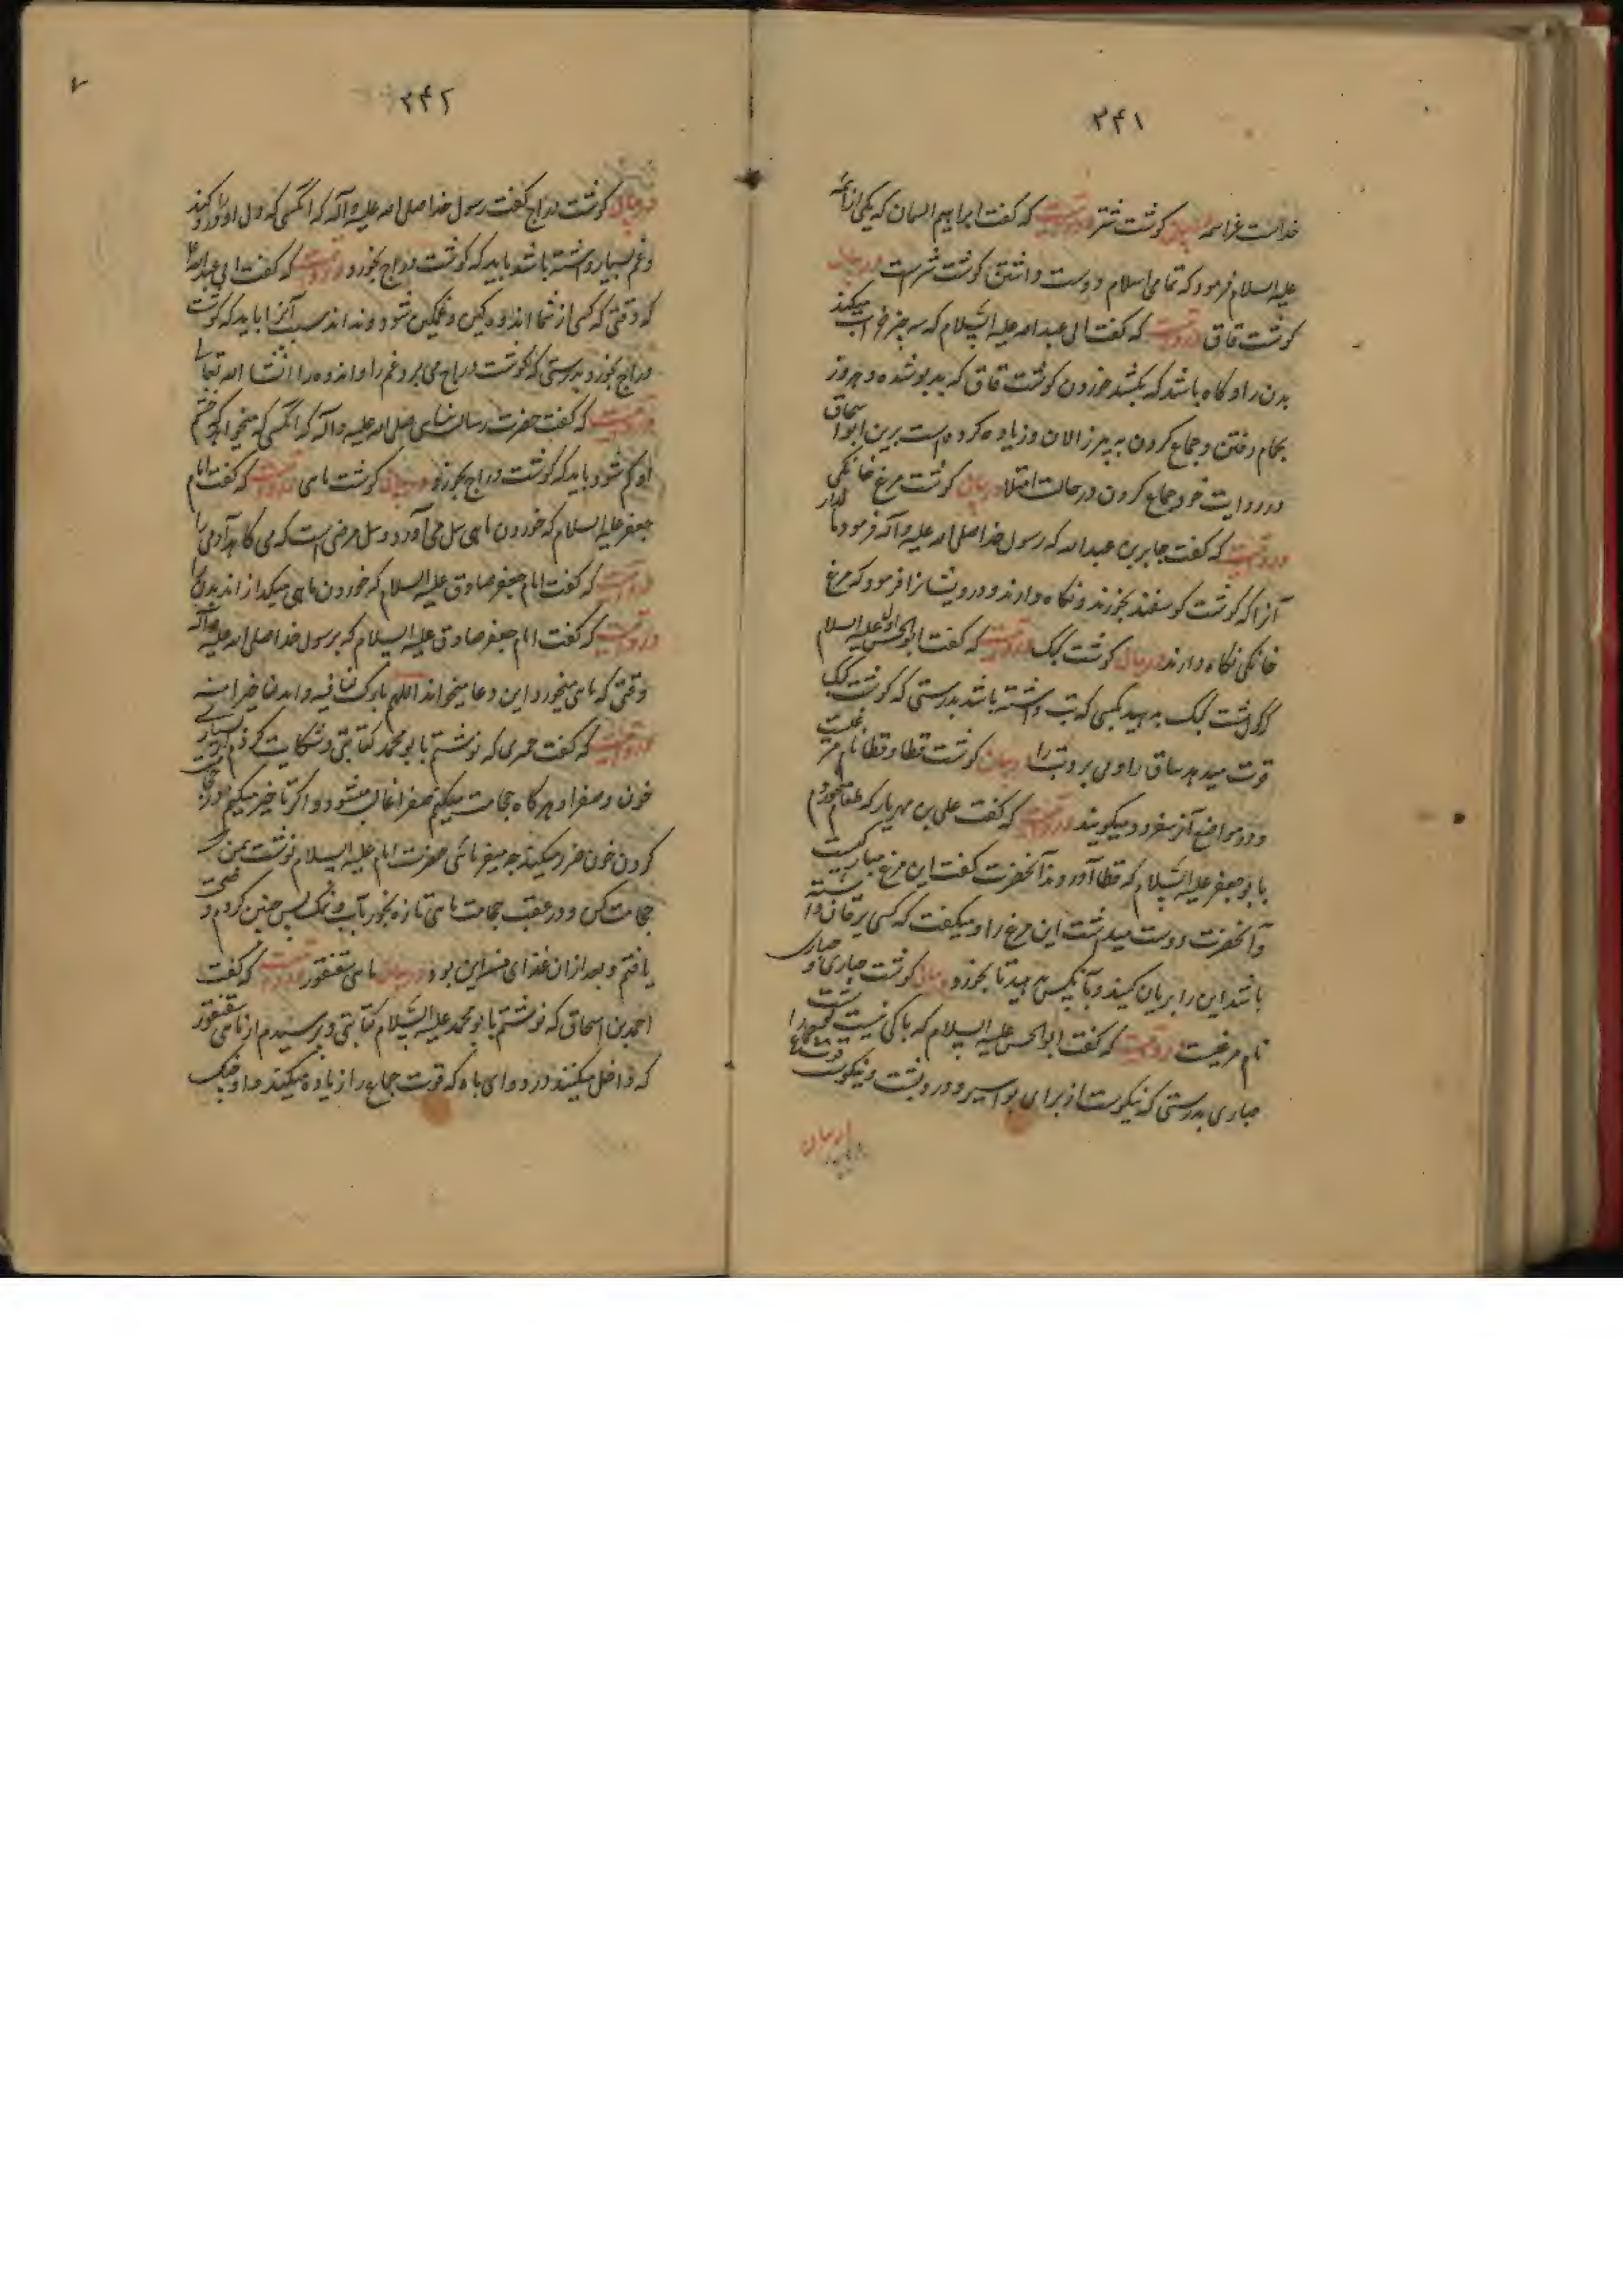 ۲۴۱
خداست عز اسمه در بیان گوشت شتر در روایتست که گفت ابراهیم السمان که یکی از ائمه
علیه السلام فرمود که تمامی اسلام دوست داشتن گوشت شتر است در بیان
گوشت قاق در روایتست که گفت ابی عبد الله علیه السلام که سه چیز خراب میکند
بدن را و گاه باشد که بکشد خوردن گوشت قاق که بدبو شده و هر روز
بحمام رفتن و جماع کردن به پیر زالان و زیاده کرده است برین ابو اسحاق
در روایت خود جماع کردن در حالت امتلا در بیان گوشت مرغ خانگی
در روایتست که گفت جابر بن عبد الله که رسول خدا صلی الله علیه و آله فرمود مالدار
آنرا که گوشت گوسفند بخورند و نگاه دارند و درویشانرا فرمود که مرغ
خانگی نگاه دارند در بیان گوشت کبک در روایتست که گفت ابو الحسن اول علیه السلام
که گوشت کبک بدهید بکسی که تب داشته باشد بدرستی که گوشت کبک
قوت میدهد ساق را و می برد تب را در بیان گوشت قطا و قطا نام مرغیست
و در مواضع آنرا سفرود میگویند در روایتست که گفت علی بن مهزیار که طعام میخوردم
با ابو جعفر علیه السلام که قطا آوردند آنحضرت گفت این مرغ مبارکیست
و آنحضرت دوست میداشت این مرغ را و میگفت که کسی یرقان داشته
باشد این را بریان کنید و بآنکس بدهید تا بخورد در بیان گوشت حباری و حباری
نام مرغیست در روایتست که گفت ابو الحسن علیه السلام که باکی نیست گوشت
حباری بدرستی که نیکوست از برای بواسیر و درد پشت و نیکوست قوت جماع را
در بیان
۲۴۲
در بیان گوشت دراج گفت رسول خدا صلی الله علیه و آله که آنکسی که دل او درد کند
و غم بسیار داشته باشد باید که گوشت دراج بخورد در روایتست که گفت ابی عبد الله
که وقتی که کسی از شما اندوه گین و غمگین شود و نداند سبب آنرا باید که گوشت
دراج بخورد بدرستی که گوشت دراج می برد غم را و اندوه را انشا الله تعالی
در روایتست که گفت حضرت رسالت پناهی صلی الله علیه و آله که آنکسی که میخواهد که خشم
او کم شود باید که گوشت دراج بخورد در بیان گوشت ماهی در روایتست که گفت امام
جعفر علیه السلام که خوردن ماهی سل می آورد و سل مرضی است که می کاهد آدمی را
در روایتست که گفت امام جعفر صادق علیه السلام که خوردن ماهی میگدازاند بدن را
در روایتست که گفت امام جعفر صادق علیه السلام که رسول خدا صلی الله علیه و آله
وقتی که ماهی میخورد این دعا میخواند اللهم بارک لنا فیه و ابدلنا خیرا منه
در روایتست که گفت حمیری که نوشتم با ابو محمد کتابتی و شکایت کردم از بسیاری
خون و صفرا و هر گاه حجامت میکنم صفرا غالب میشود و اگر تاخیر میکنم در حجامت
کردن خون ضرر میکند چه میفرمائی حضرت امام علیه السلام نوشت بمن که
حجامت کن و در عقب حجامت ماهی تازه بخور بآب و نمک پس چنین کردم و صحت
یافتم و بعد از ان غذای من این بود در بیان ماهی سقنقور در روایتست که گفت
احمد بن اسحاق که نوشتم با ابو محمد علیه السلام کتابتی و پرسیدم از ماهی سقنقور
که داخل میکنند در دوای باه که قوت جماع را زیاده میکند و او چنگ